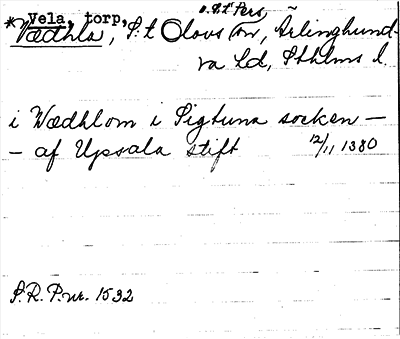 Vela, torp,
o. S:t Pers
*Vædhla, S:t Olovs sn, Ärlinghund-
ra hd, Sthlms l.
i Wædhlom i Sigtuna socken —
— af Upsala stift 12/11 1380
S.R.P. nr. 1532